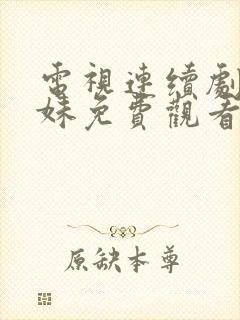 電視連續劇
妹免費觀看
原缺本尊